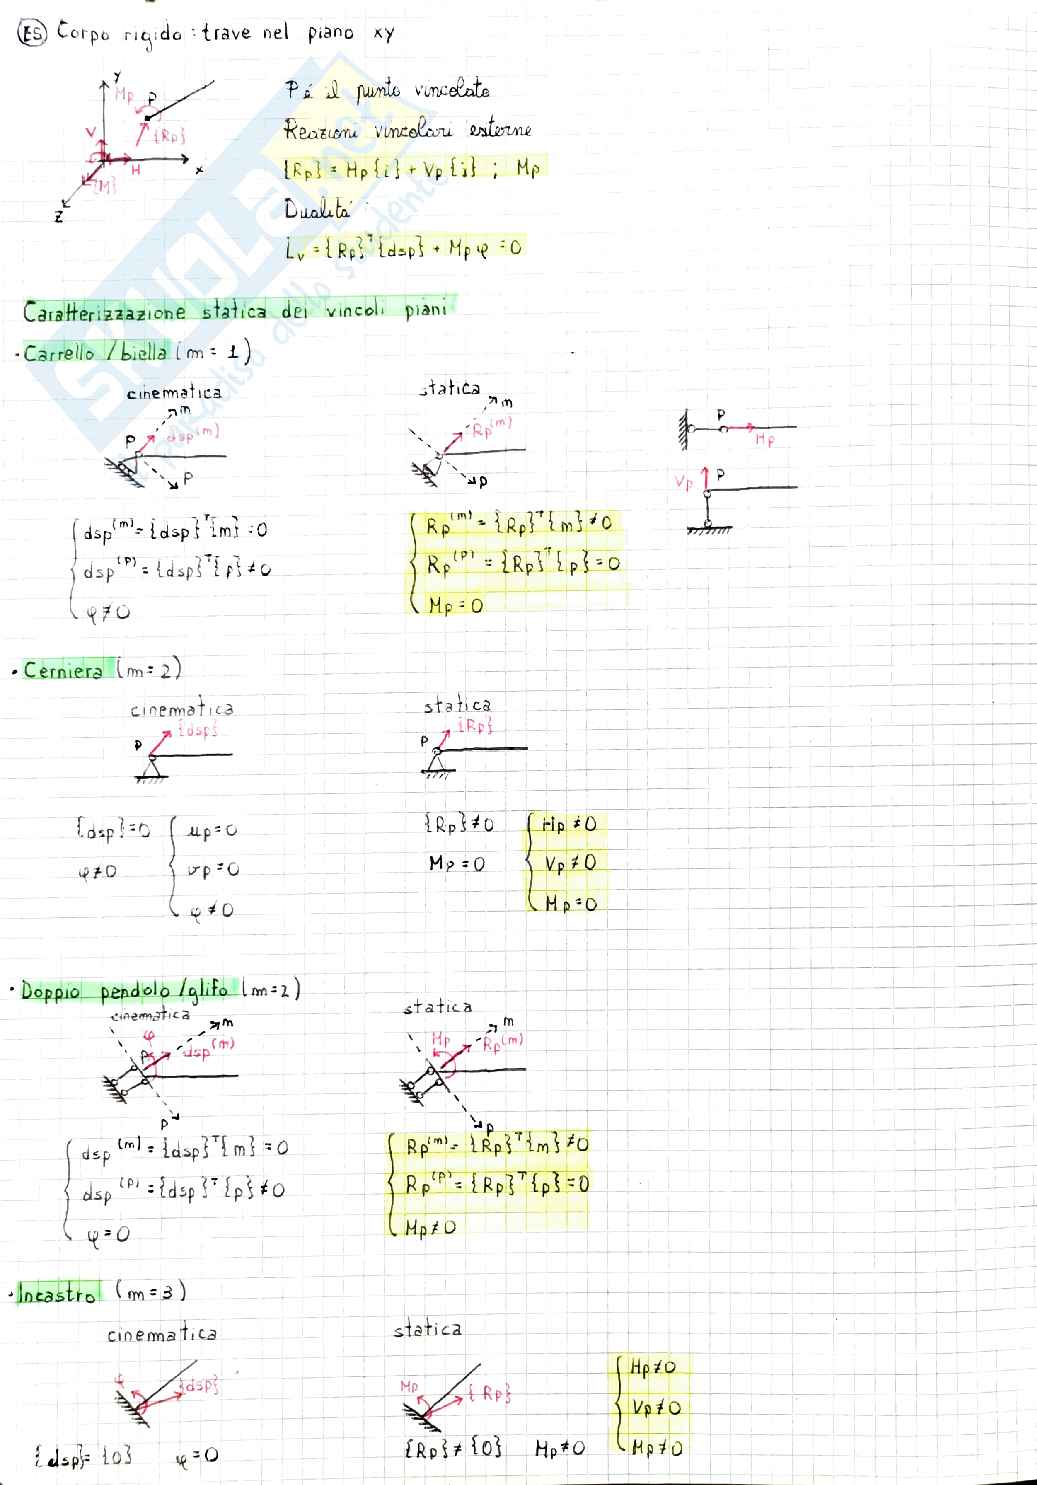 ES Corpo rigido: trave nel piano xy
Y
Mp P
{Rp}
V
H
x
{M}
Z
P é il punto vincolato
Reazioni vincolari esterne
{Rp} = Hp{i} + Vp{j} ; Mp
Dualitá
Lv = {Rp}ᵀ{dsp} + Mpφ = 0
SKUOLA.net
il paradiso dello studente
Caratterizzazione statica dei vincoli piani
· Carrello / biella (m = 1)
cinematica statica
m
P dsp⁽ᵐ⁾
p
m
Rp⁽ᵐ⁾
p
P
Hp
Vp P
dsp⁽ᵐ⁾ = {dsp}ᵀ{m} = 0
dsp⁽ᵖ⁾ = {dsp}ᵀ{p} ≠ 0
φ ≠ 0
Rp⁽ᵐ⁾ = {Rp}ᵀ{m} ≠ 0
Rp⁽ᵖ⁾ = {Rp}ᵀ{p} = 0
Mp = 0
· Cerniera (m = 2)
cinematica statica
{dsp}
P
{Rp}
P
{dsp} = 0
φ ≠ 0
up = 0
vp = 0
φ ≠ 0
{Rp} ≠ 0
Mp = 0
Hp ≠ 0
Vp ≠ 0
Mp = 0
· Doppio pendolo / glifo (m=2)
cinematica statica
m
φ
P dsp⁽ᵐ⁾
p
m
Mp Rp⁽ᵐ⁾
p
dsp⁽ᵐ⁾ = {dsp}ᵀ{m} = 0
dsp⁽ᵖ⁾ = {dsp}ᵀ{p} ≠ 0
φ = 0
Rp⁽ᵐ⁾ = {Rp}ᵀ{m} ≠ 0
Rp⁽ᵖ⁾ = {Rp}ᵀ{p} = 0
Mp ≠ 0
· Incastro (m = 3)
cinematica statica
φ {dsp}
Mp {Rp}
{dsp} = {0} φ = 0
{Rp} ≠ {0} Mp ≠ 0
Hp ≠ 0
Vp ≠ 0
Mp ≠ 0